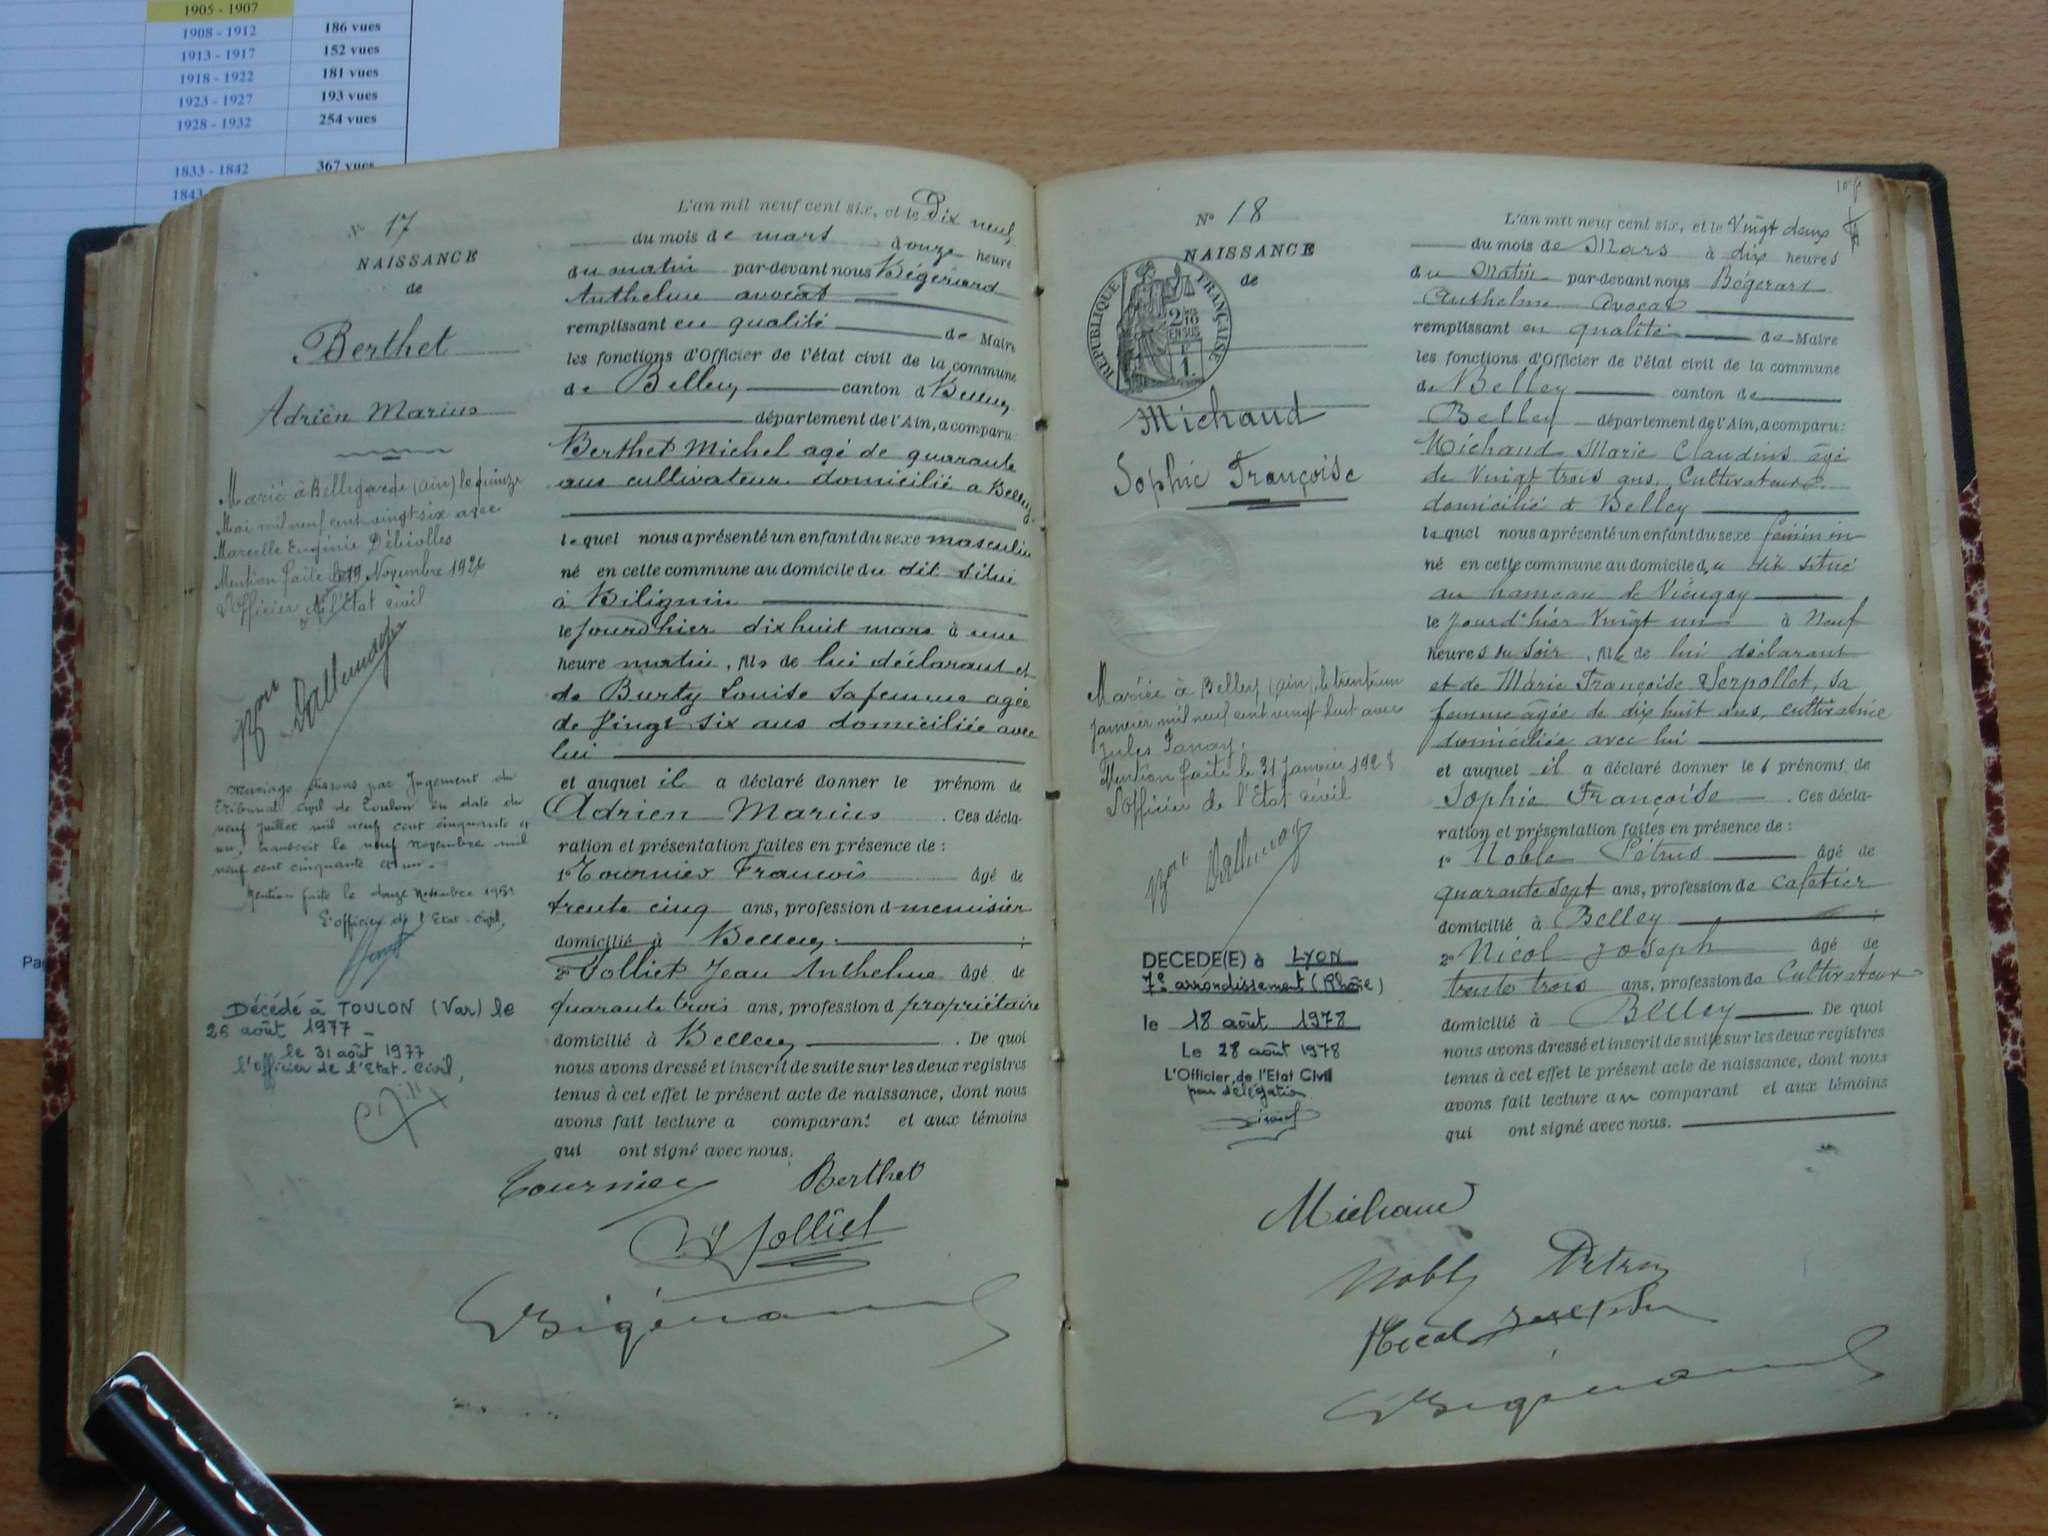 1905 - 1907
1908 - 1912 186 vues
1913 - 1917 152 vues
1918 - 1922 181 vues
1923 - 1927 193 vues
1928 - 1932 254 vues
1833 - 1842 367 vues
1843-
Pa
N° 17
NAISSANCE
de
Berthet
Adrien Marius
Marié à Bellegarde (Ain) le quinze
Mai mil neuf cent vingt six avec
Marcelle Eugénie
Mention faite le 19 Novembre 1926
L'officier de l'Etat civil
Mariage dissous par Jugement du
Tribunal Civil de Toulon en date du
neuf Juillet mil neuf cent cinquante et
un, transcrit le neuf novembre mil
neuf cent cinquante et un.
Mention faite le douze Novembre 1951
L'officier de l'Etat-Civil,
Décédé à TOULON (Var) le
26 août 1977 -
le 31 août 1977
l'officier de l'Etat-Civil,
L'an mil neuf cent six, et le Dix neuf
du mois de mars à onze heure
du matin par-devant nous Bégérard
Anthelme avocat
remplissant en qualité de Maire
les fonctions d'Officier de l'état civil de la commune
de Belley canton d Belley
département de l'Ain, a comparu:
Berthet Michel agé de quarante
ans cultivateur domicilié a Belley
le quel nous a présenté un enfant du sexe masculin
né en cette commune au domicile du dit situé
à Bilignin
le jourd'hier dix huit mars à une
heure matin, fils de lui déclarant et
de Burty Louise sa femme agée
de vingt six ans domiciliée avec
lui
et auquel il a déclaré donner le prénom de
Adrien Marius . Ces décla-
ration et présentation faites en présence de :
1° Tournier Francois âgé de
trente cinq ans, profession d menuisier
domicilié à Belley ;
2° Jolliet Jean Anthelme âgé de
quarante trois ans, profession d propriétaire
domicilié à Belley . De quoi
nous avons dressé et inscrit de suite sur les deux registres
tenus à cet effet le présent acte de naissance, dont nous
avons fait lecture a comparant et aux témoins
qui ont signé avec nous.
Tournier Berthet
Jolliet
Bégérard
N° 18
NAISSANCE
de
RÉPUBLIQUE FRANÇAISE
2/10 EN SUS
Michaud
Sophie Françoise
Mariée à Belley (Ain), le trente un
janvier mil neuf cent vingt huit avec
Jules
Mention faite le 31 Janvier 1928
L'officier de l'Etat civil
DECEDE(E) à LYON
7e arrondissement (Rhône)
le 18 août 1978
Le 28 août 1978
L'Officier de l'Etat Civil
par délégation
L'an mil neuf cent six, et le Vingt deux
du mois de Mars à dix heures
du Matin par-devant nous Bégérard
Anthelme Avocat
remplissant en qualité de Maire
les fonctions d'Officier de l'état civil de la commune
de Belley canton de
Belley département de l'Ain, a comparu:
Michaud Marie Claudius âgé
de Vingt trois ans, Cultivateur
domicilié à Belley
le quel nous a présenté un enfant du sexe féminin
né en cette commune au domicile du dit situé
au hameau de
le jourd'hier Vingt un à Neuf
heures du soir, fille de lui déclarant
et de Marie Françoise Serpollet, sa
femme âgée de dix huit ans, cultivatrice
domiciliée avec lui
et auquel il a déclaré donner le s prénoms de
Sophie Françoise . Ces décla-
ration et présentation faites en présence de :
1° Noble Pétrus âgé de
quarante sept ans, profession de cafetier
domicilié à Belley ;
2° Nicol Joseph âgé de
trente trois ans, profession de Cultivateur
domicilié à Belley . De quoi
nous avons dressé et inscrit de suite sur les deux registres
tenus à cet effet le présent acte de naissance, dont nous
avons fait lecture au comparant et aux témoins
qui ont signé avec nous.
Michaud
Noble Pétrus
Nicol Joseph
Bégérard